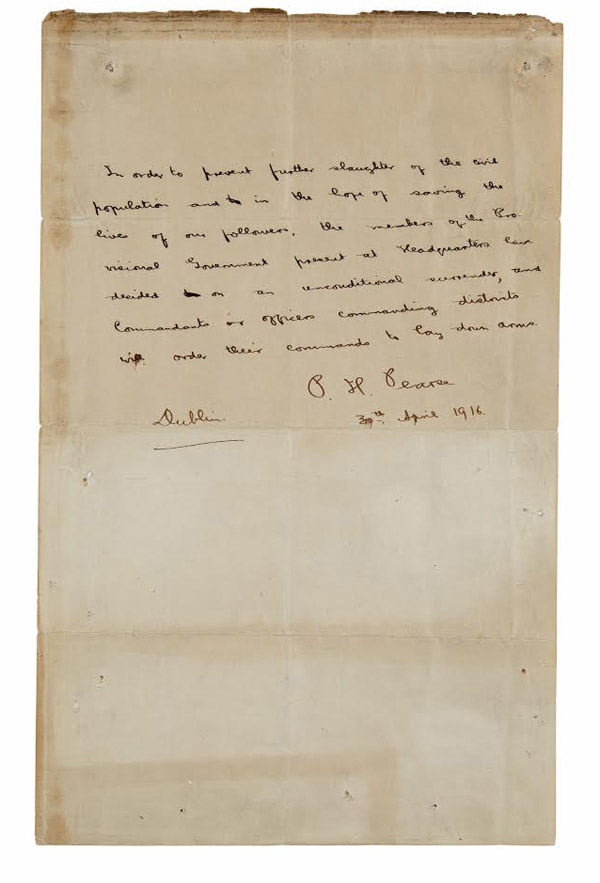 In order to prevent further slaughter of the civil
population and in the hope of saving the
lives of our followers, the members of the Pro-
visional Government present at Headquarters have
decided on an unconditional surrender, and
Commandants or officers commanding districts
will order their commands to lay down arms.
P. H. Pearse
Dublin.
30th. April 1916.